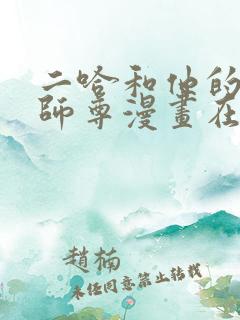 二哈和他的
師尊漫畫在
趙楠
未任同意禁止转载